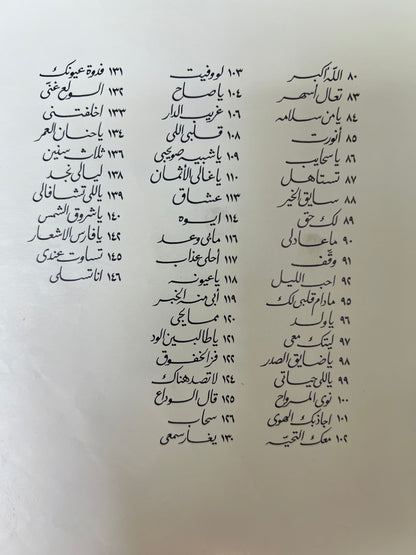 ٨٠ اللّه أكبر
٨٣ تعال أسهر
٨٤ يا من سلامه
٨٥ أنورت
٨٦ يا سحايب
٨٧ تستاهل
٨٨ سايق الخير
٨٩ لك حق
٩٠ ما عاد لي
٩١ وقّف
٩٢ احب الليل
٩٥ مادام قلبي لك
٩٦ يا ولد
٩٧ ليتك معي
٩٨ يا ضايق الصدر
٩٩ ياللي حياتي
١٠٠ نوى المرواح
١٠١ اجاذبك الهوى
١٠٢ معك التحيّه
١٠٣ لو وفيت
١٠٤ يا صاح
١٠٦ غريب الدار
١٠٨ قلبي اللي
١٠٩ يا شبيه صويحبي
١١٠ يا غالي الأثمان
١١٣ عشاق
١١٤ ايوه
١١٦ مابي وعد
١١٧ أحلى عذاب
١١٨ يا عيونه
١١٩ أبي منه الخبر
١٢٠ ممايحي
١٢١ يا طالبين الود
١٢٢ فز الخفوق
١٢٤ لا تصد هناك
١٢٥ قال الوداع
١٢٦ سحاب
١٣٠ يغار سمعي
١٣١ فدوة عيونك
١٣٢ الولع غنّى
١٣٣ اخلفتني
١٣٤ يا حنان العمر
١٣٦ ثلاث سنين
١٣٨ ليالي نجد
١٣٩ ياللي تشافالي
١٤٠ يا شروق الشمس
١٤٢ يا فارس الاشعار
١٤٥ تساوت عندي
١٤٦ انا تسلى